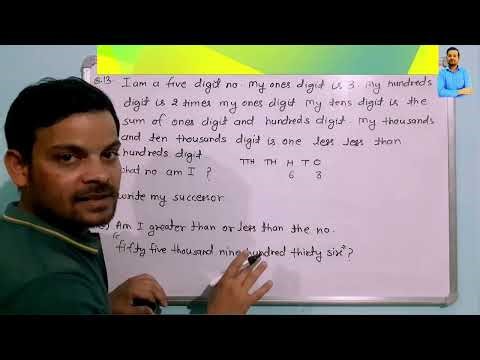 Q.13. I am a five digit no. My ones digit is 3. My hundreds
digit is 2 times my ones digit My tens digit is the
sum of ones digit and hundreds digit. My thousands
and ten thousands digit is one less less than
hundreds digit
TTH TH H T O
6 3
what no am I ?
write my successor
Am I greater than or less than the no.
fifty five thousand nine hundred thirty six?